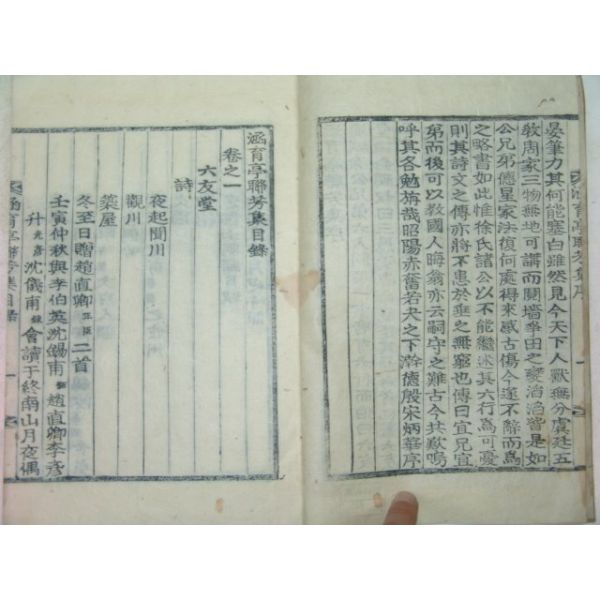 晏筆力其何能塞白雖然見今天下人獸無分虞廷五
敎周家三物無地可講而鬩墻爭田之變滔滔皆是如
公兄弟德星家法復何處得來感古傷今遂不辭而爲
之略書如此惟徐氏諸公以不能繼述其六行爲可憂
則其詩文之傳亦將不患於垂之無窮也傳曰宜兄宜
弟而後可以敎國人晦翁亦云嗣守之難古今共歎嗚
呼其各勉旃哉昭陽赤奮若夬之下澣德殷宋炳華序
涵育亭聯芳集序
涵育亭聯芳集目錄
卷之一
六友堂
詩
夜起聞川
觀川
築屋
冬至日贈趙直卿 二首
壬寅仲秋與李伯英沈錫甫 趙直卿李彥
升 沈儀甫 會讀于終南山月夜偶
涵育亭聯芳集目錄
一